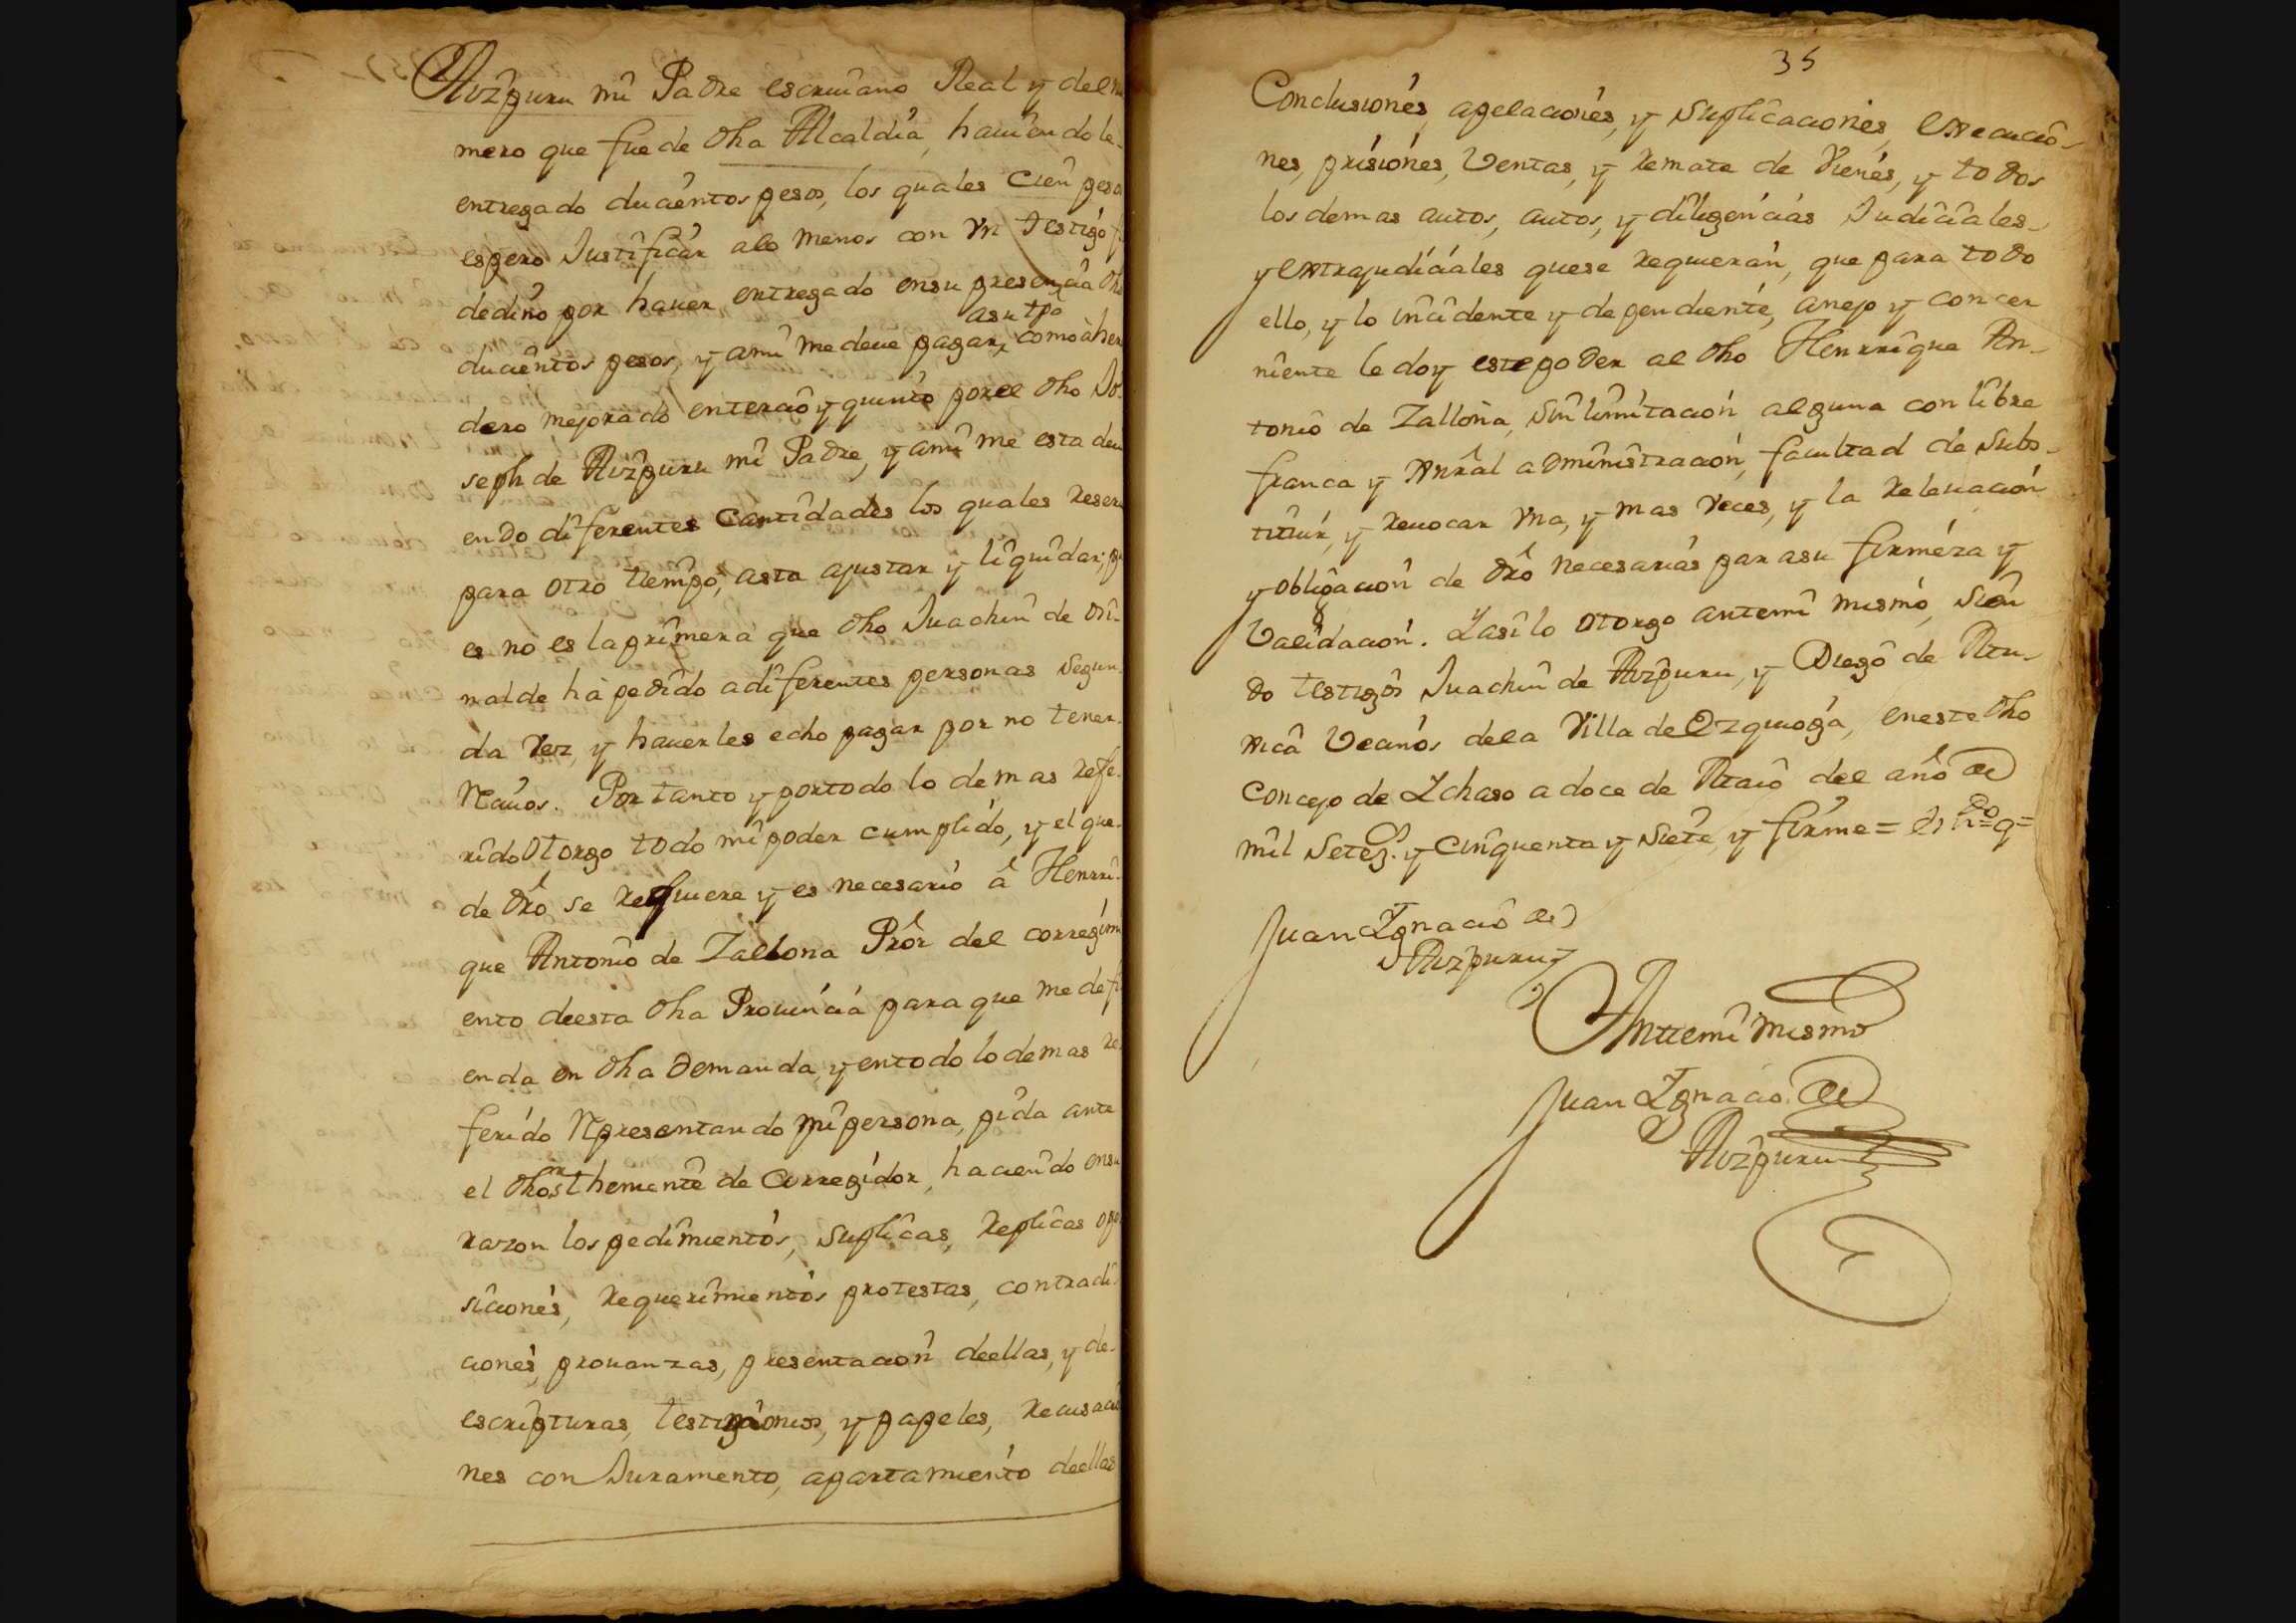 Aizpuru mi Padre escriuano Real y del nu
mero que fue de dha Alcaldia, hauiendole
entregado ducientos pesos, los quales cien pesos
espero Justificar alo menos con Vn testigo fi
dedino por hauer entregado ensu presencia dhos
asu tpo
ducientos pesos, y ami me deue pagar, como àhere
dero mejorado entercio y quinto por el dho Jo
seph de Aizpuru mi Padre, y ami me esta deui
endo diferentes Cantidades los quales reseru
para otro tiempo, asta ajustar y liquidar; pu
es no es la primera que dho Juachin de Ori-
nalde hà pedido adiferentes personas segun-
da Vez, y hauerles echo pagar por no tener-
Reciuos. Por tanto y portodo lo demas refe-
rido Otorgo todo mi poder cumplido, y el que-
de dro se requiere y es necesario â Henrri-
que Antonio de Zallona Pror del corregimi
ento deesta dha Prouincia para que me defi
enda en dha demanda, y entodo lo demas re
ferido Representando mi persona, pida ante
el dho sor theniente de Corregidor, haciendo ensu
razon los pedimientos, suplicas, Replicas opo
siciones, Requerimientos protestas, contradi
ciones, prouanzas, presentacion deellas, y de-
escripturas, testimonios, y papeles, recusacio
nes con Juramento, apartamiento deellas
35
Conclusiones, apelaciones, y suplicaciones, execucio-
nes, prisiones, Ventas, y remate de Vienes, y todos
los demas autos, autos, y diligencias Judiciales-
y extrajudiciales quese requieran, que para todo
ello, y lo incidente y dependiente, anejo y concer
niente le doy este poder al dho Henrrique An-
tonio de Zallona, sin limitacion alguna con libre
franca y Xnral administracion, facultad de Subs-
tituir, y reuocar Vna, y mas Veces, y la releuacion
y obligacion de dro necesarias par asu firmeza y
Validacion. Y asi lo otorgo antemi mismo, sien
do testigos Juachin de Aizpuru, y Diego de Atu-
xica Vecinos dela Villa de Ezquioga, en este dho
Concejo de Ychaso a doce de Maio del año de
mil Setez.s y cinquenta y siete, y firme =
Juan Ygnacio de
Aizpuru
Anttemi mismo
Juan Ygnacio de
Aizpuru